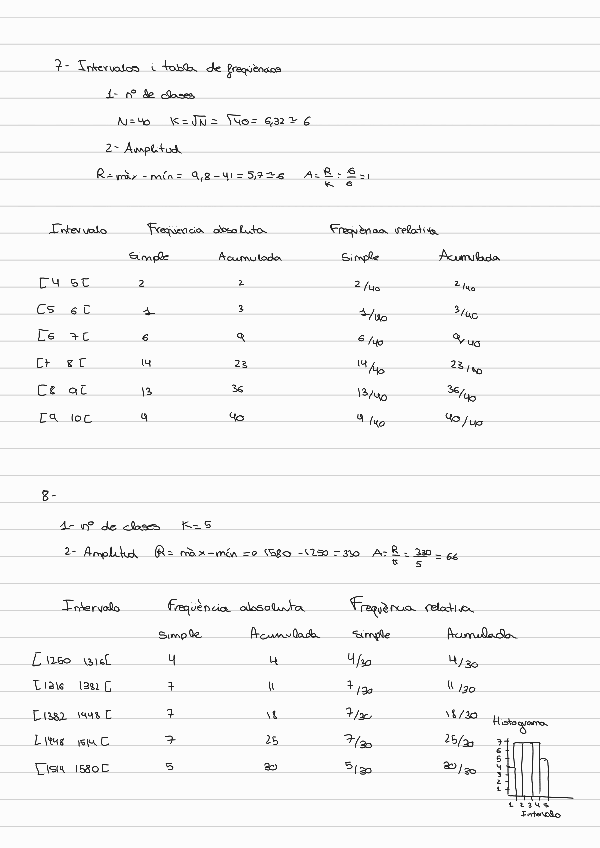 7- Intervalos i tabla de freqüències
1- nº de clases
N=40 K=√N = √40 = 6,32 ≃ 6
2- Amplitud
R=màx-mín= 9,8-41=5,7≃6 A=R/K=6/6=1
Intervalo Freqüencia absoluta Freqüència relativa
Simple Acumulada Simple Acumulada
[4 5[ 2 2 2/40 2/40
[5 6[ 1 3 1/40 3/40
[6 7[ 6 9 6/40 9/40
[7 8[ 14 23 14/40 23/40
[8 9[ 13 36 13/40 36/40
[9 10[ 4 40 4/40 40/40
8-
1- nº de clases K=5
2- Amplitud R=màx-mín= 1580-1250=330 A=R/K=330/5=66
Intervalo Freqüència absoluta Freqüència relativa
Simple Acumulada Simple Acumulada
[1250 1316[ 4 4 4/30 4/30
[1316 1382[ 7 11 7/30 11/30
[1382 1448[ 7 18 7/30 18/30
[1448 1514[ 7 25 7/30 25/30
[1514 1580[ 5 30 5/30 30/30
Histograma
7
6
5
4
3
2
1
1 2 3 4 5
Intervalo